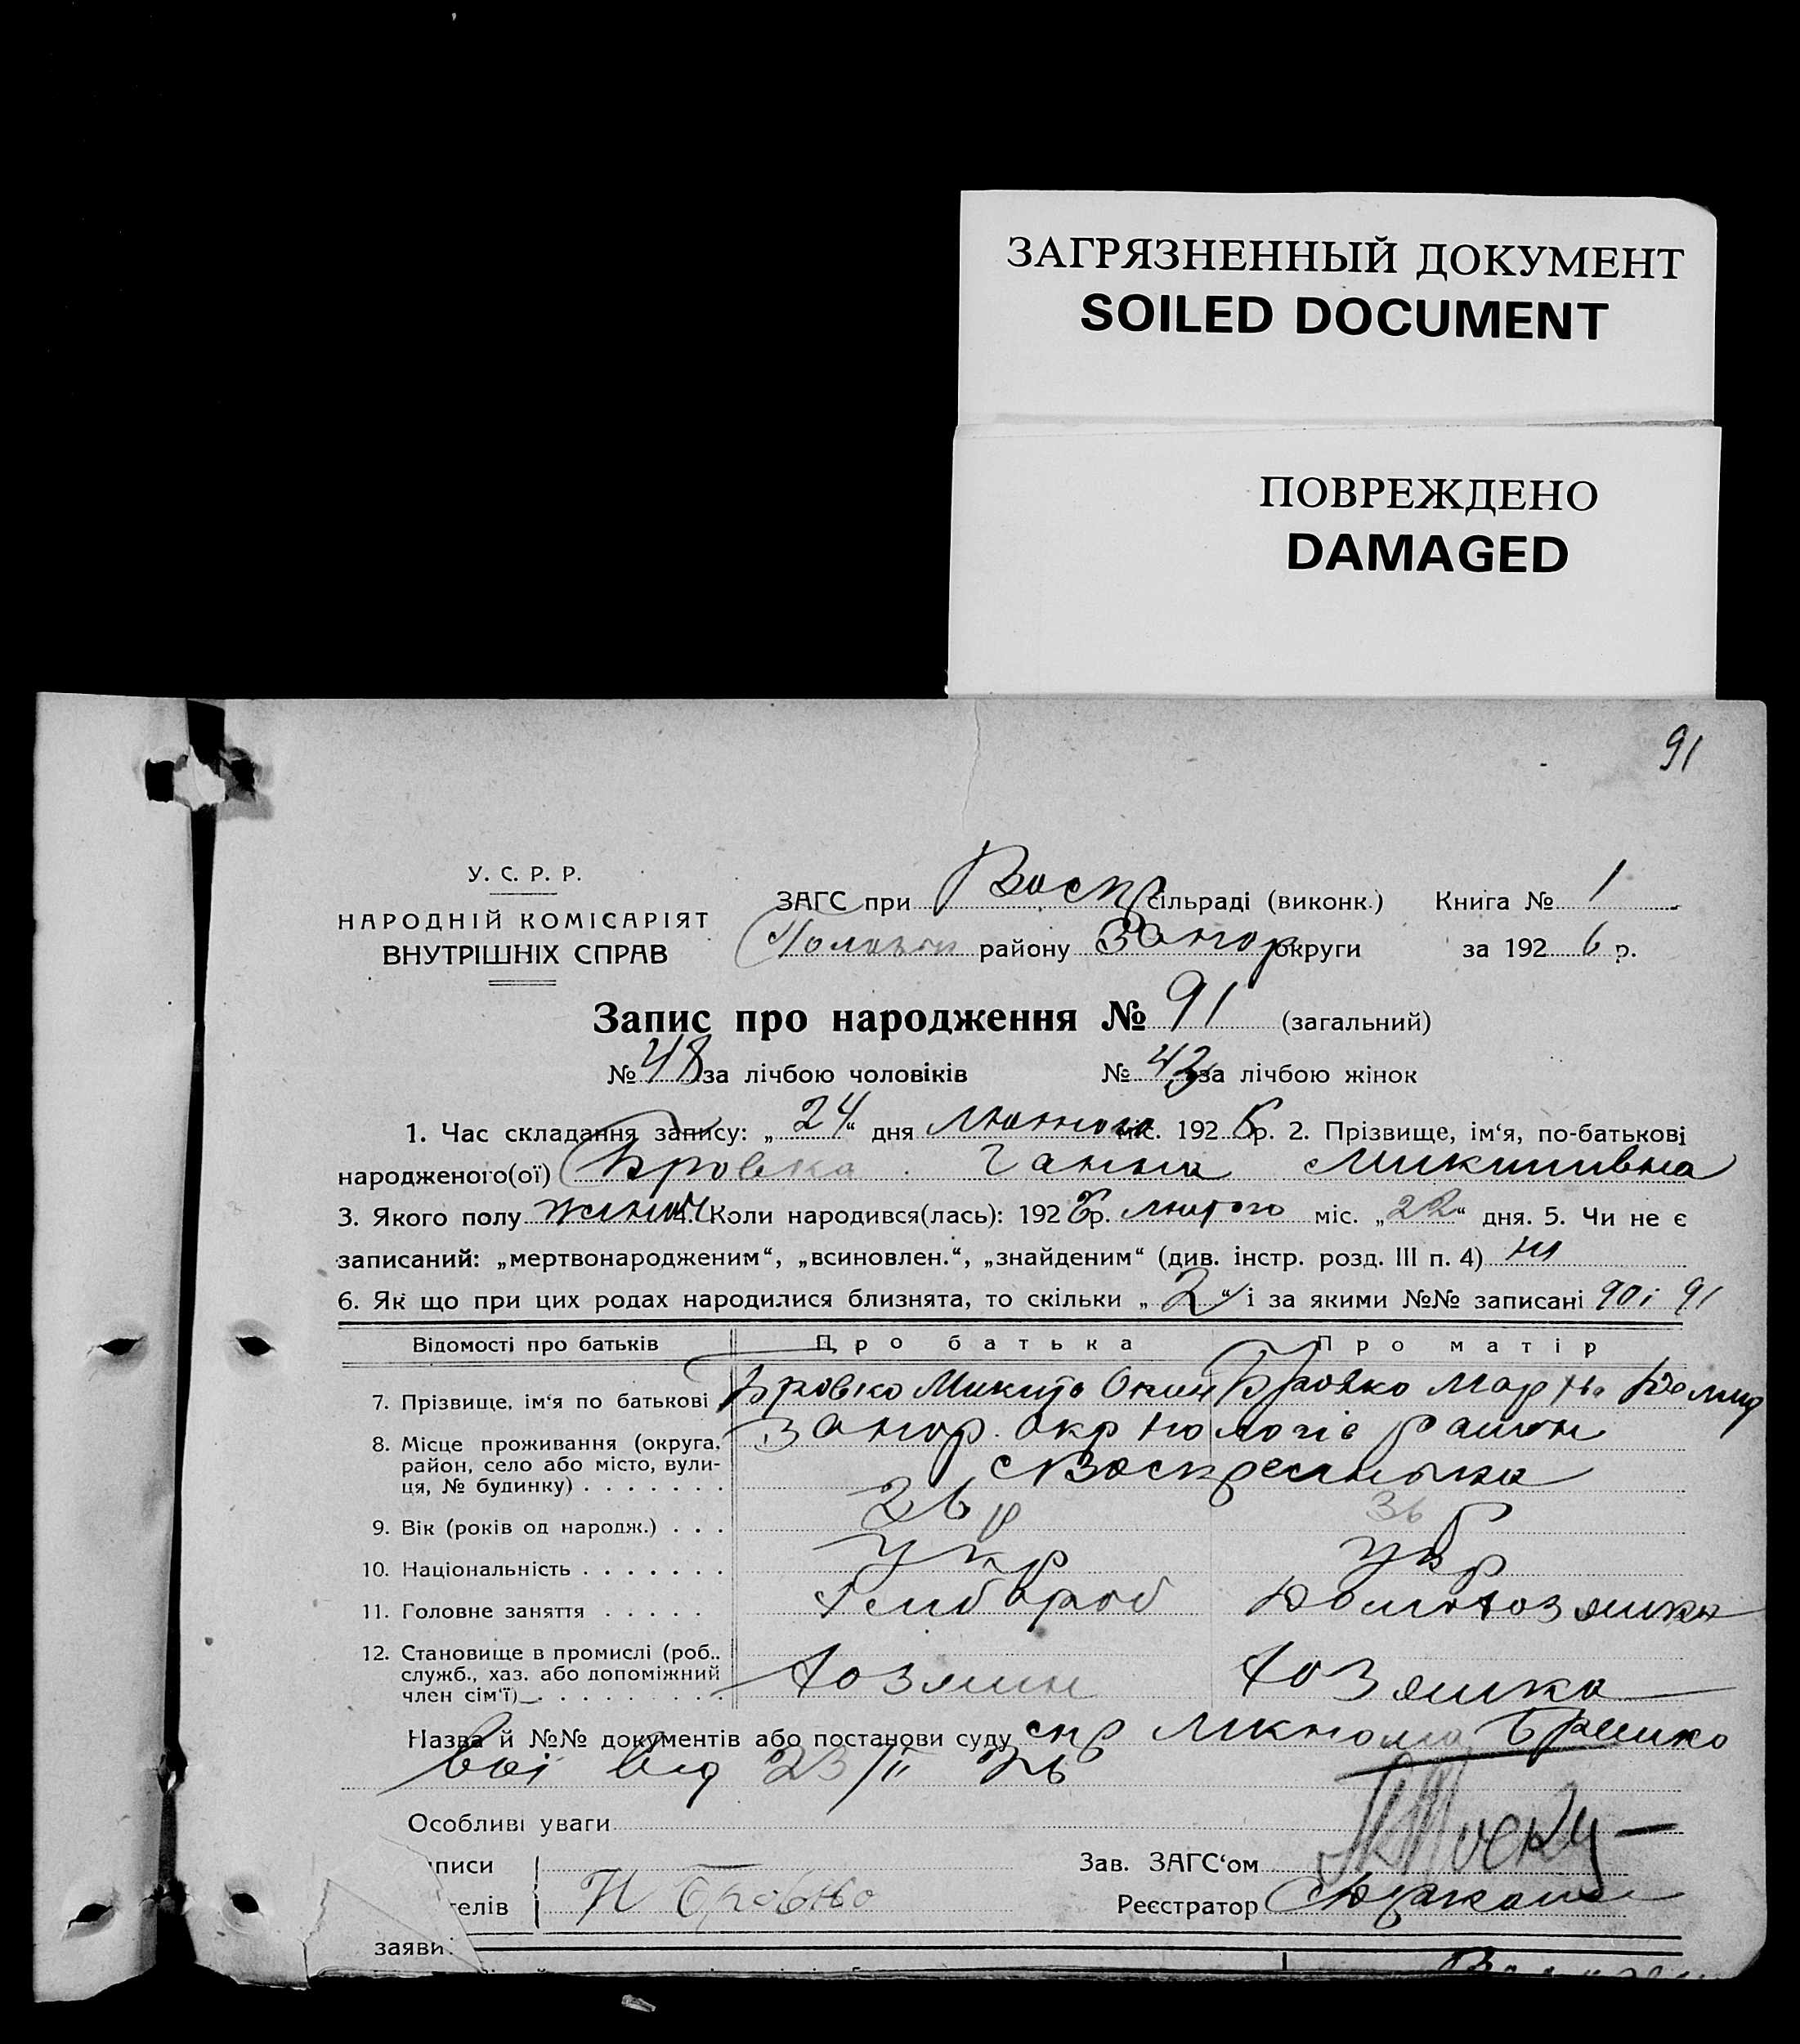 ЗАГРЯЗНЕННЫЙ ДОКУМЕНТ
SOILED DOCUMENT
ПОВРЕЖДЕНО
DAMAGED
91
У. С. Р. Р.
НАРОДНІЙ КОМІСАРІЯТ
ВНУТРІШНІХ СПРАВ
ЗАГС при Воскр сільраді (виконк.) Книга № 1
району Запор округи за 1926 р.
Запис про народження № 91 (загальний)
№ 48 за лічбою чоловіків № 43 за лічбою жінок
1. Час складання запису: „24“ дня лютого міс. 1926 р. 2. Прізвище, ім‘я, по-батькові
народженого(ої) Бровка Ганна Микитівна
3. Якого полу жіноч 4. Коли народився(лась): 1926 р. лютого міс. „22“ дня. 5. Чи не є
записаний: „мертвонародженим“, „всиновлен.“, „знайденим“ (див. інстр. розд. III п. 4) ні
6. Як що при цих родах народилися близнята, то скільки „2“ і за якими №№ записані 90 і 91
Відомості про батьків Про батька Про матір
7. Прізвище, ім‘я по батькові Бровко Микита Бровко Марта Демид
8. Місце проживання (округа, район, село або місто, вулиця, № будинку) . . . . . . . Запор. окр пологів район
с Воскресенька
9. Вік (років од народж.) . . . 26 р 36
10. Національність . . . . . . . Укр Укр
11. Головне заняття . . . . . Хлібороб Домохозяйка
12. Становище в промислі (роб., служб., хаз. або допоміжний член сім‘ї) . . . . . . . . . Хозяин Хозяйка
Назва й №№ документів або постанови суду спр
від 23/II 26
Особливі уваги
писи
елів Н Бровко
Зав. ЗАГС‘ом
Реєстратор
заяви